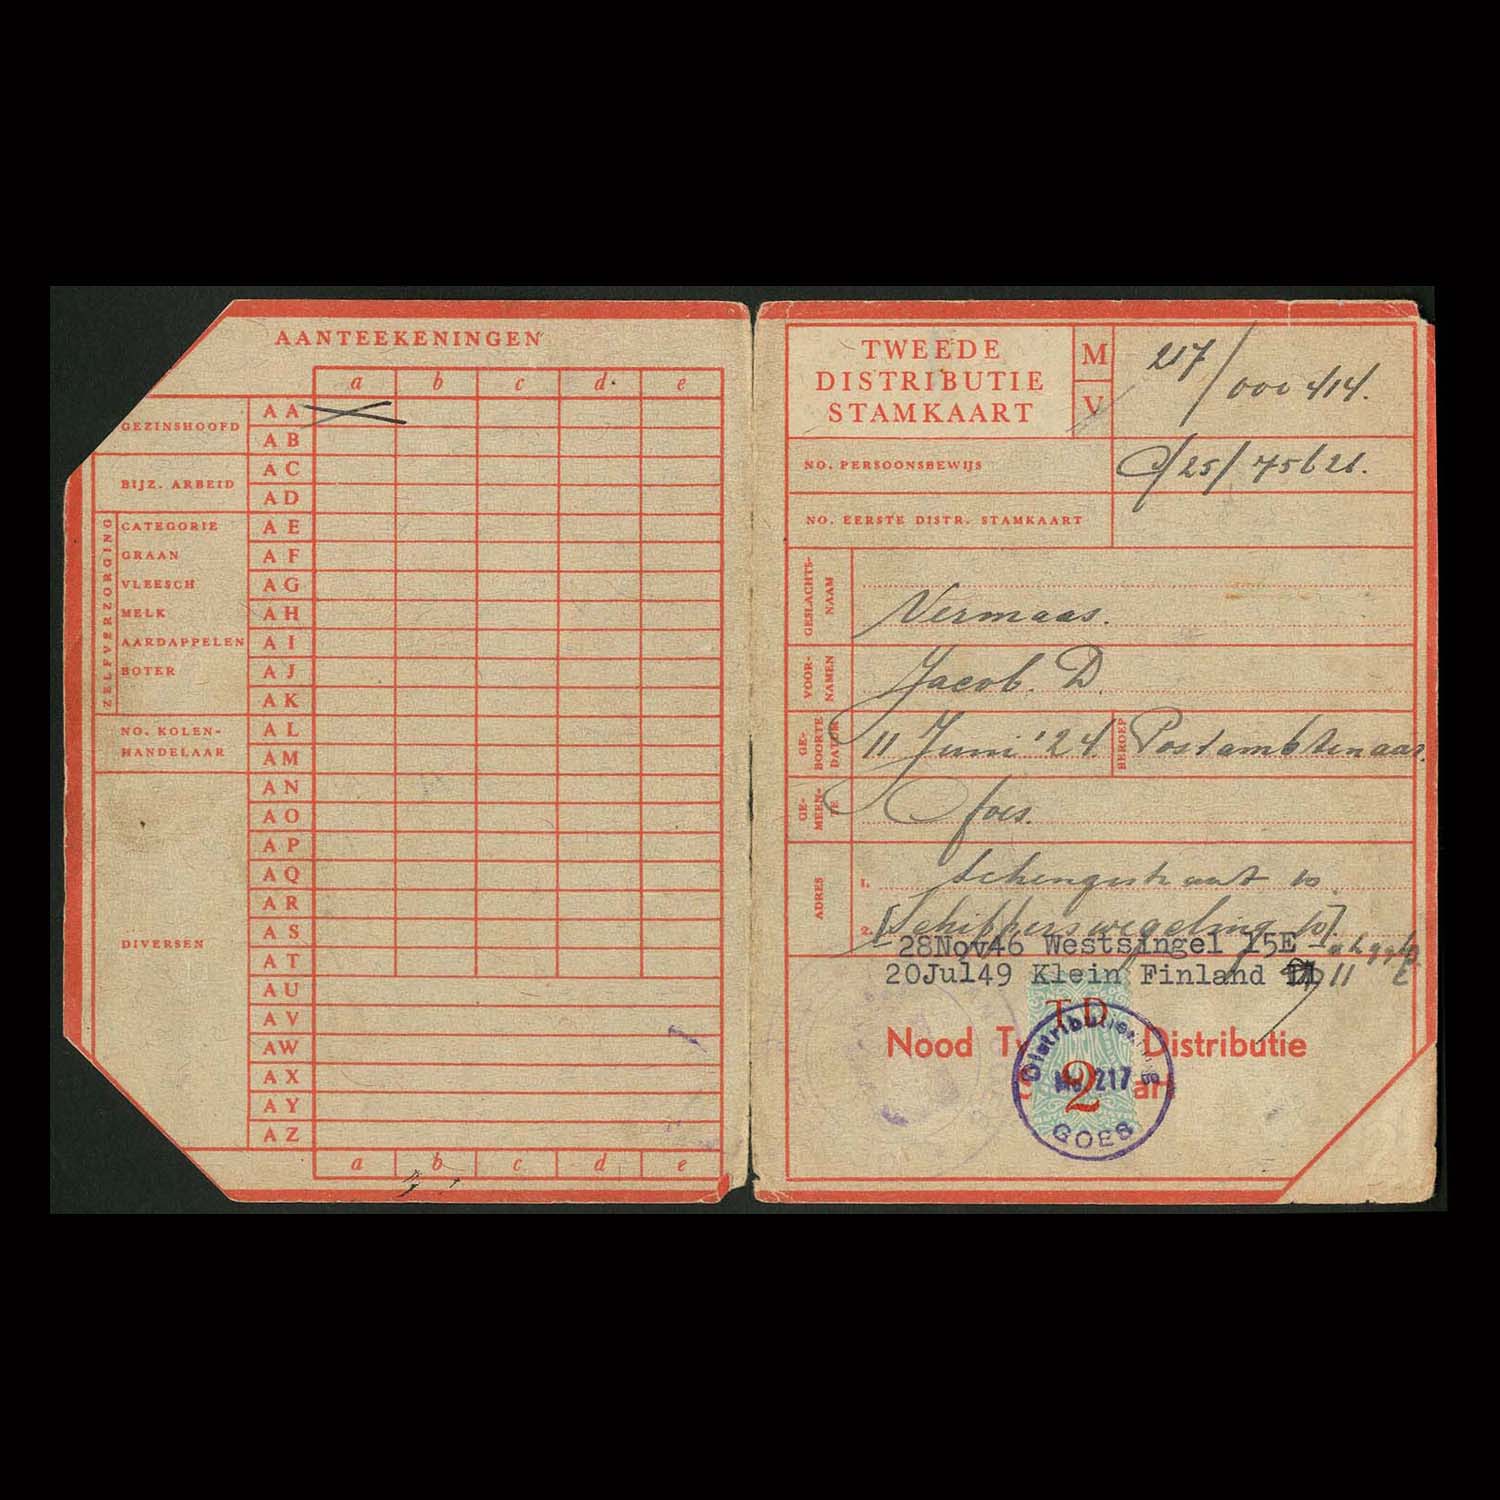 AANTEEKENINGEN
a b c d e
GEZINSHOOFD
AA
AB
BIJZ. ARBEID
AC
AD
ZELFVERZORGING
CATEGORIE AE
GRAAN AF
VLEESCH AG
MELK AH
AARDAPPELEN AI
BOTER AJ
AK
NO. KOLEN-
HANDELAAR
AL
AM
DIVERSEN
AN
AO
AP
AQ
AR
AS
AT
AU
AV
AW
AX
AY
AZ
a b c d e
TWEEDE
DISTRIBUTIE
STAMKAART
M
V
217/000414.
NO. PERSOONSBEWIJS
25/
NO. EERSTE DISTR. STAMKAART
GESLACHTS-
NAAM
Vermaas.
VOOR-
NAMEN
Jacob. D.
GE-
BOORTE-
DATUM
11 Juni '24
BEROEP
Postambtenaar
GE-
MEEN-
TE
Goes.
ADRES
1. 10.
2. [Schipperswegeling 10].
28Nov46 Westsingel 15E
20Jul49 Klein Finland 11
TD
2
Nood Distributie
Distributie
No. 217
GOES